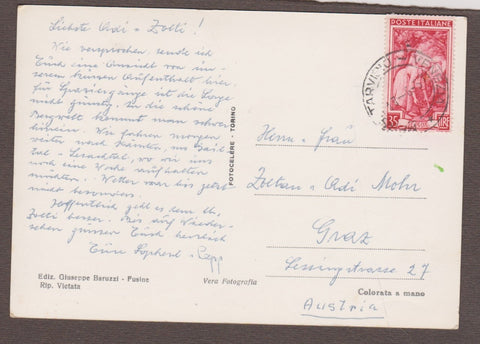 Liebste Adi - Zolti!
Wie versprochen sende ich
Euch eine Ansicht von un-
serem kurzen Aufenthalt hier.
für Spaziergänge ist die Lage
nicht günstig. In die schöne
Bergwelt kommt man schwer
hinein. Wir fahren morgen
weiter nach Kärnten, ins Gail-
tal - Lesachtal, wo wir uns
noch eine Woche aufhalten
möchten. - Wetter war bis jetzt
nicht besonders.
Hoffentlich geht es dem lb.
Zolti besser. Bis auf Wieder-
sehen grüssen Euch herzlich
Eure
Ediz. Giuseppe Baruzzi - Fusine
Rip. Vietata
Vera Fotografia
FOTOCELERE · TORINO
POSTE ITALIANE
L. 35
TARVISIO
Herrn u. Frau
Zoltan u. Adi Mohr
Graz
Lessingstrasse 27
Colorata a mano
Austria